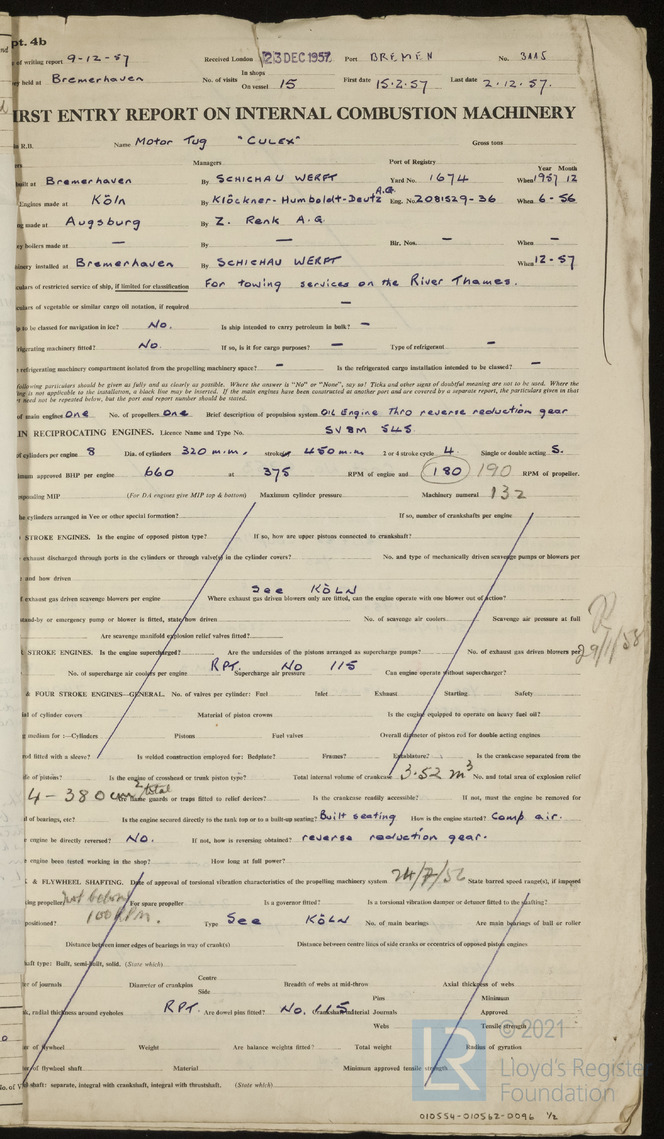 pt. 4b
of writing report 9-12-57 Received London 23 DEC 1957 Port BREMEN No. 3445
ey held at Bremerhaven No. of visits In shops On vessel 15 First date 15.2.57 Last date 2.12.57.
IRST ENTRY REPORT ON INTERNAL COMBUSTION MACHINERY
R.B. Name Motor Tug "CULEX" Gross tons
Managers Port of Registry
Year Month
built at Bremerhaven By SCHICHAU WERFT Yard No. 1674 When 1957 12
Engines made at Köln By Klöckner-Humboldt-Deutz A.G. Eng. No. 2081529-36 When 6-56
ng made at Augsburg By Z. Renk A.G.
ey boilers made at — By — Blr. Nos. — When —
inery installed at Bremerhaven By SCHICHAU WERFT When 12-57
ulars of restricted service of ship, if limited for classification For towing services on the River Thames.
ulars of vegetable or similar cargo oil notation, if required —
ip to be classed for navigation in ice? No. Is ship intended to carry petroleum in bulk? —
frigerating machinery fitted? No. If so, is it for cargo purposes? — Type of refrigerant —
refrigerating machinery compartment isolated from the propelling machinery space? — Is the refrigerated cargo installation intended to be classed? —
following particulars should be given as fully and as clearly as possible. Where the answer is "No" or "None", say so! Ticks and other signs of doubtful meaning are not to be used. Where the
ing is not applicable to the installation, a black line may be inserted. If the main engines have been constructed at another port and are covered by a separate report, the particulars given in that
need not be repeated below, but the port and report number should be stated.
of main engines One No. of propellers One Brief description of propulsion system Oil Engine Thro reverse reduction gear
IN RECIPROCATING ENGINES. Licence Name and Type No. SV8M 545.
of cylinders per engine 8 Dia. of cylinders 320 m.m. stroke 450 m.m. 2 or 4 stroke cycle 4. Single or double acting S.
imum approved BHP per engine 660 at 375 RPM of engine and 180 190 RPM of propeller.
sponding MIP (For DA engines give MIP top & bottom) Maximum cylinder pressure Machinery numeral 132
he cylinders arranged in Vee or other special formation? If so, number of crankshafts per engine
STROKE ENGINES. Is the engine of opposed piston type? If so, how are upper pistons connected to crankshaft?
exhaust discharged through ports in the cylinders or through valve(s) in the cylinder covers? No. and type of mechanically driven scavenge pumps or blowers per
and how driven
See KÖLN
f exhaust gas driven scavenge blowers per engine Where exhaust gas driven blowers only are fitted, can the engine operate with one blower out of action?
stand-by or emergency pump or blower is fitted, state how driven No. of scavenge air coolers Scavenge air pressure at full
Are scavenge manifold explosion relief valves fitted? 29/1/58
STROKE ENGINES. Is the engine supercharged? Are the undersides of the pistons arranged as supercharge pumps? No. of exhaust gas driven blowers per
RPT. No 115
No. of supercharge air coolers per engine Supercharge air pressure Can engine operate without supercharger?
& FOUR STROKE ENGINES—GENERAL. No. of valves per cylinder: Fuel Inlet Exhaust Starting Safety
ial of cylinder covers Material of piston crowns Is the engine equipped to operate on heavy fuel oil?
g medium for :—Cylinders Pistons Fuel valves Overall diameter of piston rod for double acting engines
od fitted with a sleeve? Is welded construction employed for: Bedplate? Frames? Entablature? Is the crankcase separated from the
ide of pistons? Is the engine of crosshead or trunk piston type? Total internal volume of crankcase 3.52 m³ No. and total area of explosion relief
4 - 380 cm² total Are flame guards or traps fitted to relief devices? Is the crankcase readily accessible? If not, must the engine be removed for
ul of bearings, etc? Is the engine secured directly to the tank top or to a built-up seating? Built seating How is the engine started? Comp air.
engine be directly reversed? No. If not, how is reversing obtained? reverse reduction gear.
engine been tested working in the shop? How long at full power?
K & FLYWHEEL SHAFTING. Date of approval of torsional vibration characteristics of the propelling machinery system 24/7/56 State barred speed range(s), if imposed
ing propeller just below 100 RPM. For spare propeller Is a governor fitted? Is a torsional vibration damper or detuner fitted to the shafting?
positioned? Type See KÖLN No. of main bearings Are main bearings of ball or roller
Distance between inner edges of bearings in way of crank(s) Distance between centre lines of side cranks or eccentrics of opposed piston engines
haft type: Built, semi-built, solid. (State which)
er of journals Diameter of crankpins Centre Side Breadth of webs at mid-throw Axial thickness of webs
k, radial thickness around eyeholes RPT. Are dowel pins fitted? No. 115 Crankshaft material Pins Journals Webs Minimum Approved Tensile strength
er of flywheel Weight Are balance weights fitted? Total weight Radius of gyration
er of flywheel shaft Material Minimum approved tensile strength
el shaft: separate, integral with crankshaft, integral with thrustshaft. (State which)
© 2021
LR Lloyd's Register
Foundation
010554-010562-0096 ½